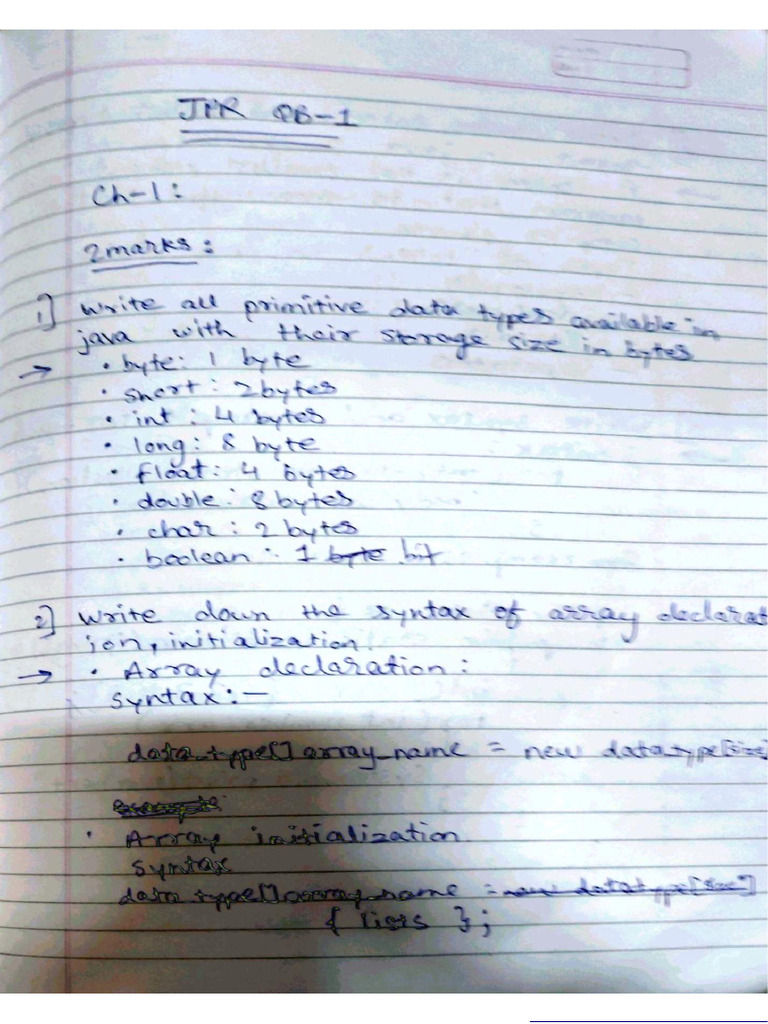 JPR QB-1
Ch-1:
2marks:
1] Write all primitive data types available in
java with their storage size in bytes
→ • byte: 1 byte
• short: 2bytes
• int: 4 bytes
• long: 8 byte
• float: 4 bytes
• double: 8bytes
• char: 2 bytes
• boolean: 1 byte bit
2] Write down the syntax of array declarat
ion, initialization.
→ • Array declaration:
syntax:-
data_type[] array_name = new data_type[size]
• Array initialization
syntax
data type[] array_name = new datatype[size]
{ lists };